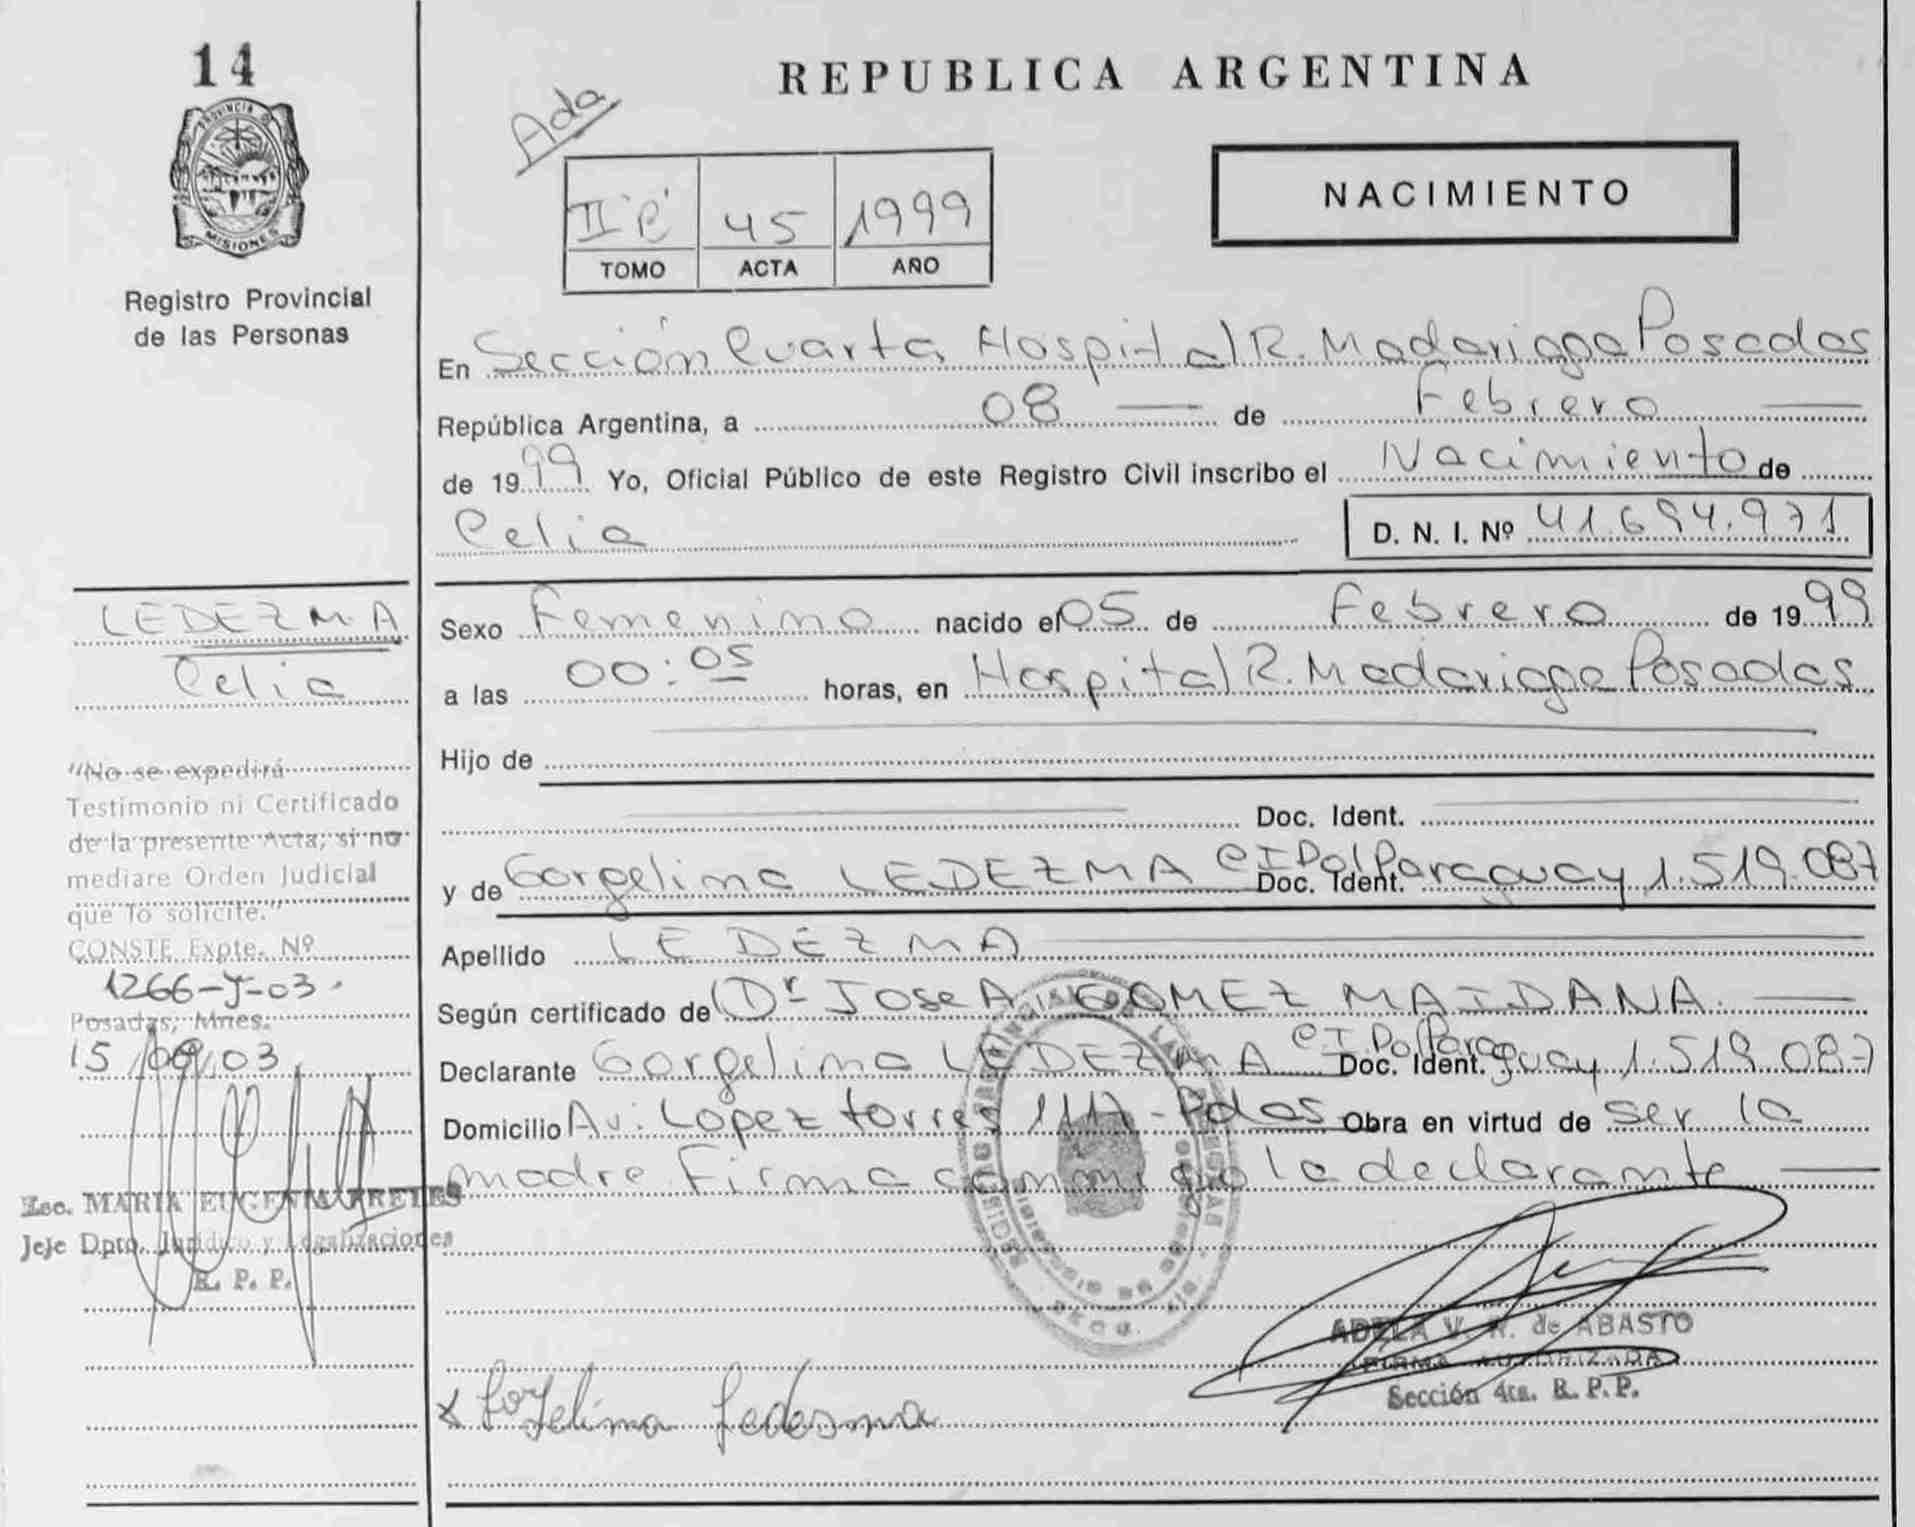 14
PROVINCIA DE
MISIONES
Registro Provincial
de las Personas
REPUBLICA ARGENTINA
Ada
NACIMIENTO
II "C" 45 1999
TOMO ACTA AÑO
En Sección Cuarta Hospital R. Madariaga Posadas
República Argentina, a 08 de Febrero
de 1999 Yo, Oficial Público de este Registro Civil inscribo el Nacimiento de
Celia D. N. I. Nº 41.694.971
LEDEZMA
Celia
Sexo Femenino nacido el 05 de Febrero de 1999
a las 00:05 horas, en Hospital R. Madariaga Posadas
Hijo de
Doc. Ident.
y de Gorgelina LEDEZMA Doc. Ident. C I Pol Paraguay 1.519.087
Apellido LEDEZMA
Según certificado de Dr JOSE A. GOMEZ MAIDANA.
Declarante Gorgelina LEDEZMA Doc. Ident. C I Pol Paraguay 1.519.087
Domicilio Av. Lopez torres 1117 - Pdas Obra en virtud de ser la
madre Firma conmigo la declarante
"No se expedirá
Testimonio ni Certificado
de la presente Acta, si no
mediare Orden Judicial
que lo solicite."
CONSTE Expte. Nº
1266-J-03.
Posadas, Mnes.
15/09/03
Esc. MARIA EUGENIA FRETES
Jefe Dpto. Jurídico y Legalizaciones
R. P. P.
ADELA V. R. de ABASTO
FIRMA AUTORIZADA
Sección 4ta. R. P. P.
x Gorgelina Ledesma